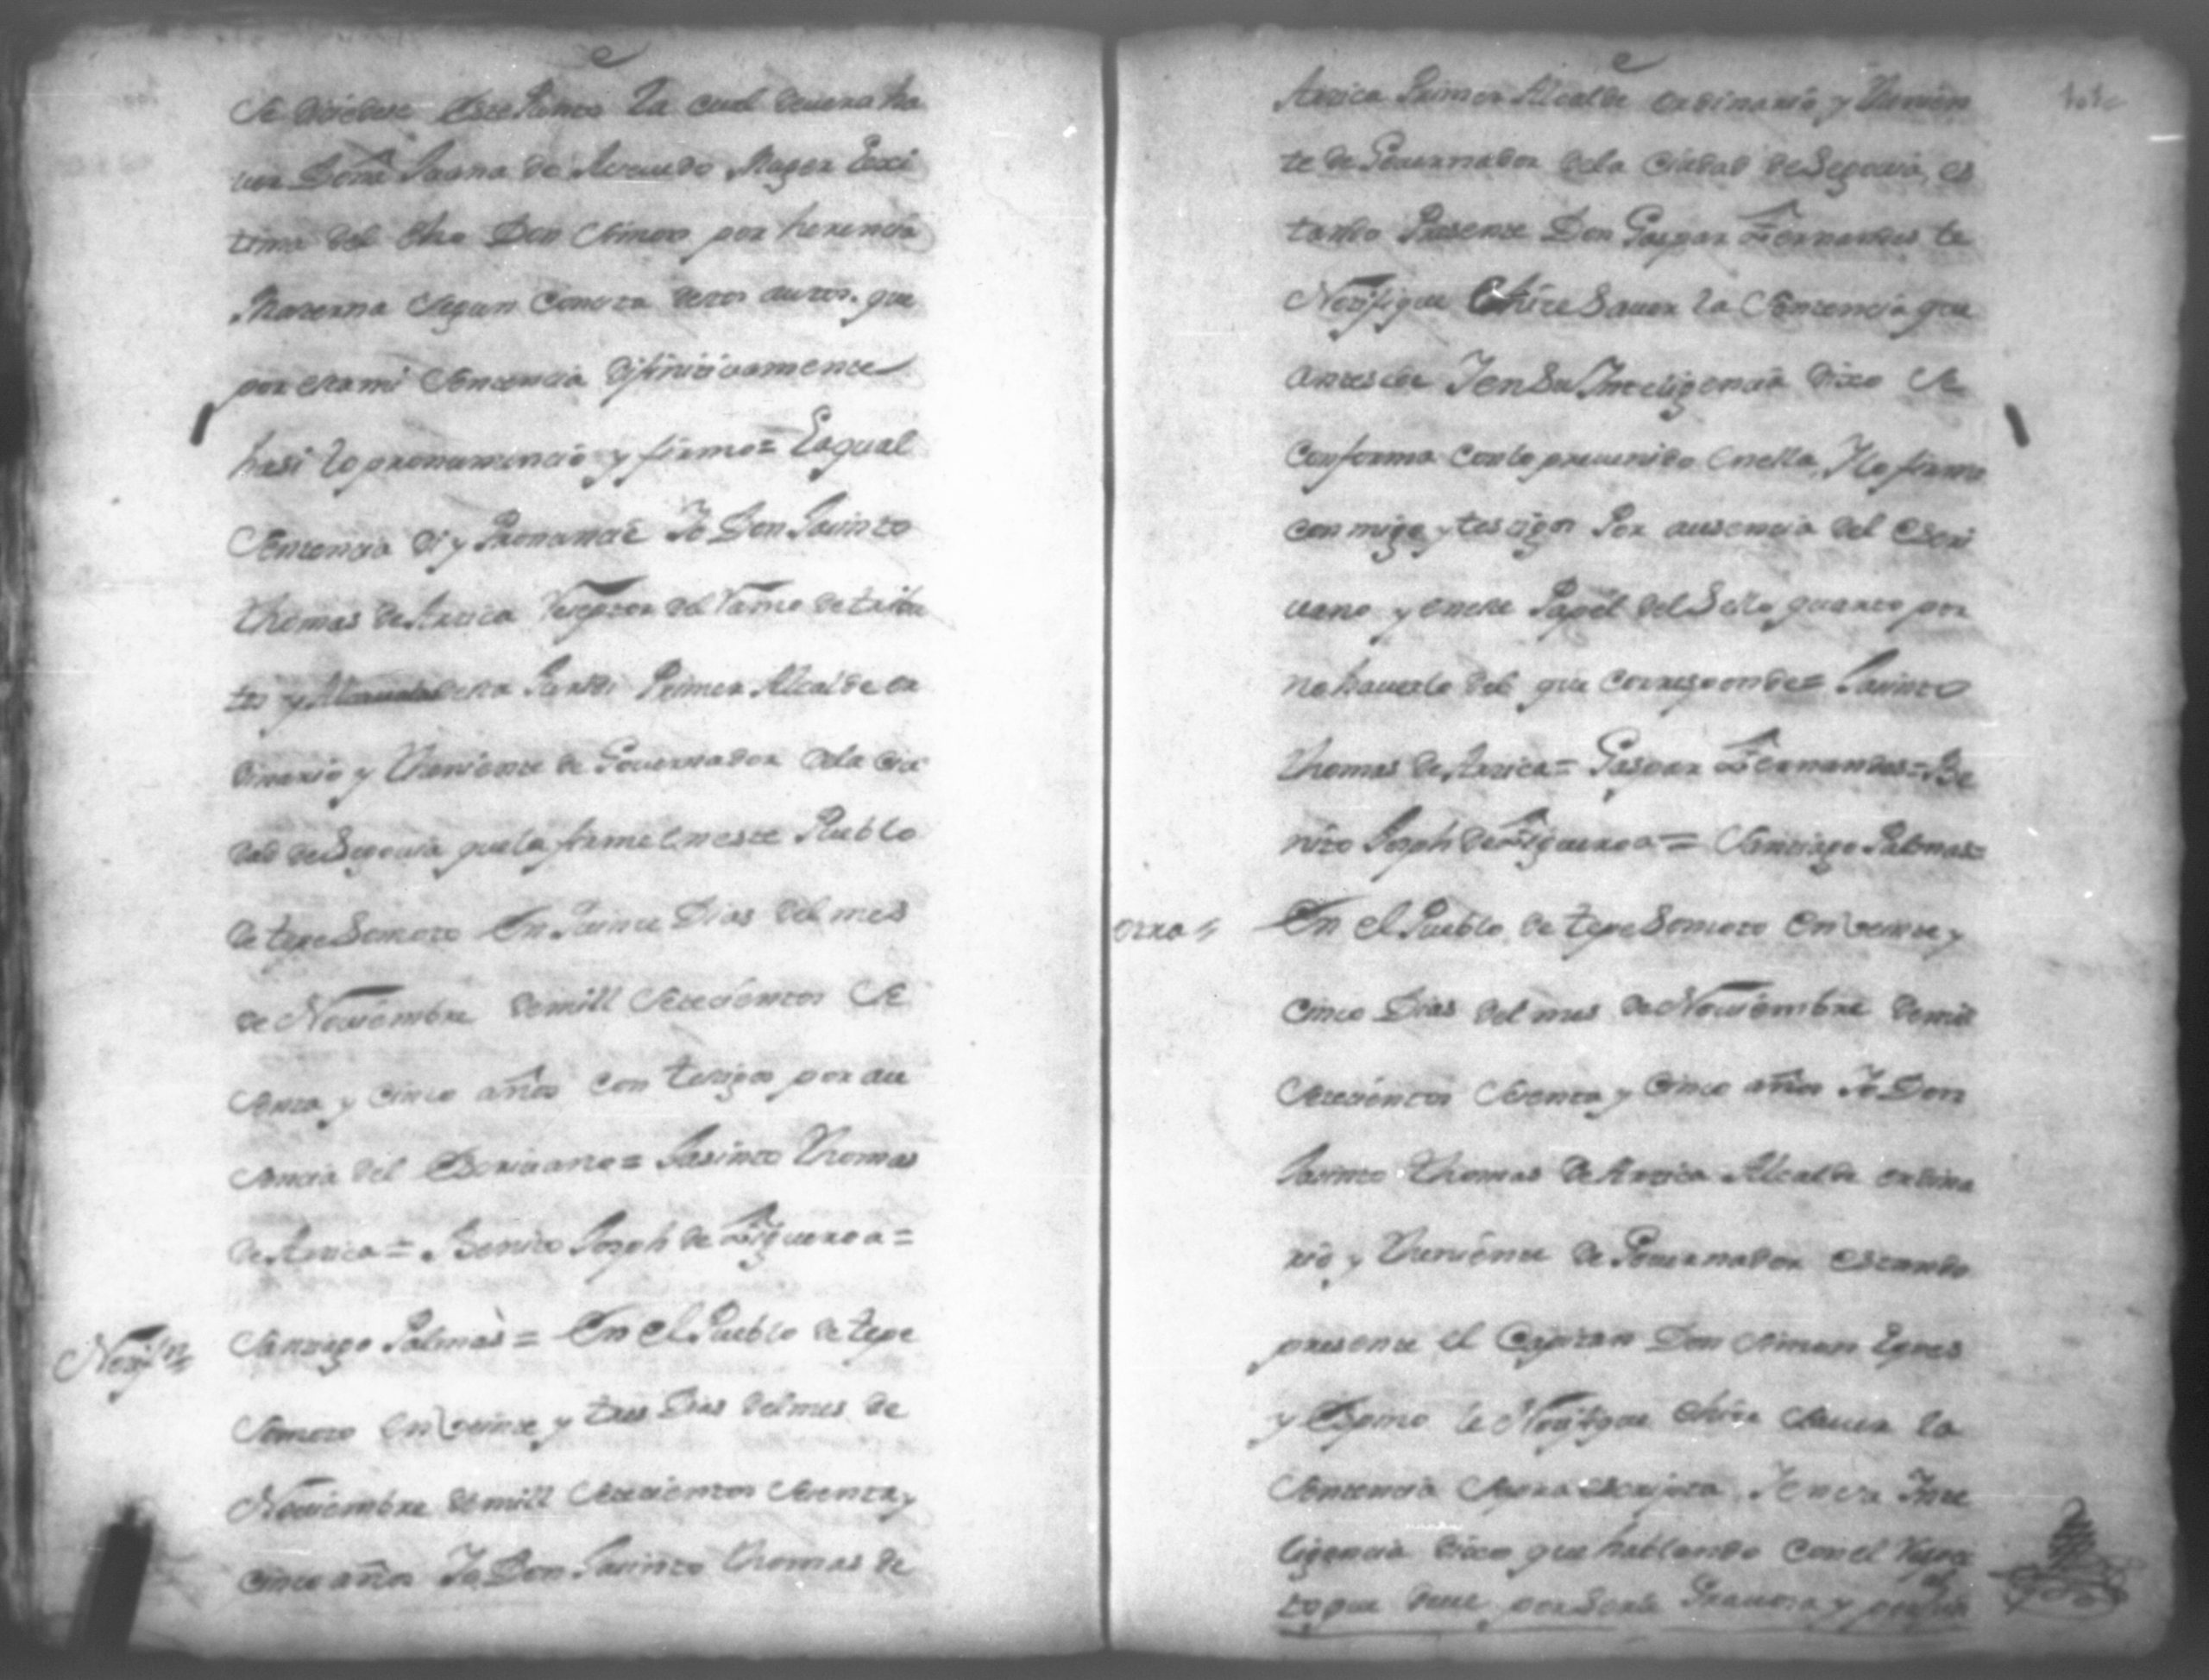 Se dividere este Ramo la cual devera ha
ver Doña Juana de Acevedo Muger Lexi
tima del dho Don Simon por herencia
Materna segun consta de los autos. que
por esta mi Sentencia difinitivamente
hasi lo pronunincio y firmo = La qual
Sentencia di y Pronuncié Yo Don Jacinto
Thomas de Arzica Reseptor del Ramo de tribu
tos y Partido Primer Alcalde or
dinario y Theniente de Governador dela ciu
dad de Segovia que la firme en este Pueblo
de tepe Somoto En Quince Dias del mes
de Noviembre de mill Setecientos Se
senta y cinco años con testigos por au
sencia del Escrivano = Jasinto Thomas
de Arzica = Benito Joseph de Figueroa =
Notif.n
Santiago Palmas = En el Pueblo de tepe
Somoto en veinte y tres Dias del mes de
Noviembre de mill Setecientos Sesenta y
cinco años Yo Don Jacinto Thomas de
Arzica Primer Alcalde ordinario y Thenien
te de Governador dela Ciudad de Segovia, es
tando Presente Don Gaspar Fernandes le
Notifique e hice Saver la Sentencia que
antesede Y en Su Inteligencia Dixo Se
Conforma con lo prevenido en ella, Y lo firmo
con migo y testigos Por ausencia del Escri
vano y en este Papel del Sello quarto por
no haverlo del que corresponde = Jacinto
Thomas de Arzica = Gaspar Fernandes = Be
nito Joseph de Figueroa = Santiago Palmas =
otra
En el Pueblo de tepe Somoto En veinte y
cinco Dias del mes de Noviembre de mil
Setecientos Sesenta y Cinco años Yo Don
Jasinto Thomas de Arzica Alcalde ordina
rio y Theniente de Governador Estando
presente el Capitan Don Simon
y Espino le Notifique e hice Saver la
Sentencia Y en su Inte
ligencia dixo que hablando con el Respe
to que deve por Serle Gravosa y